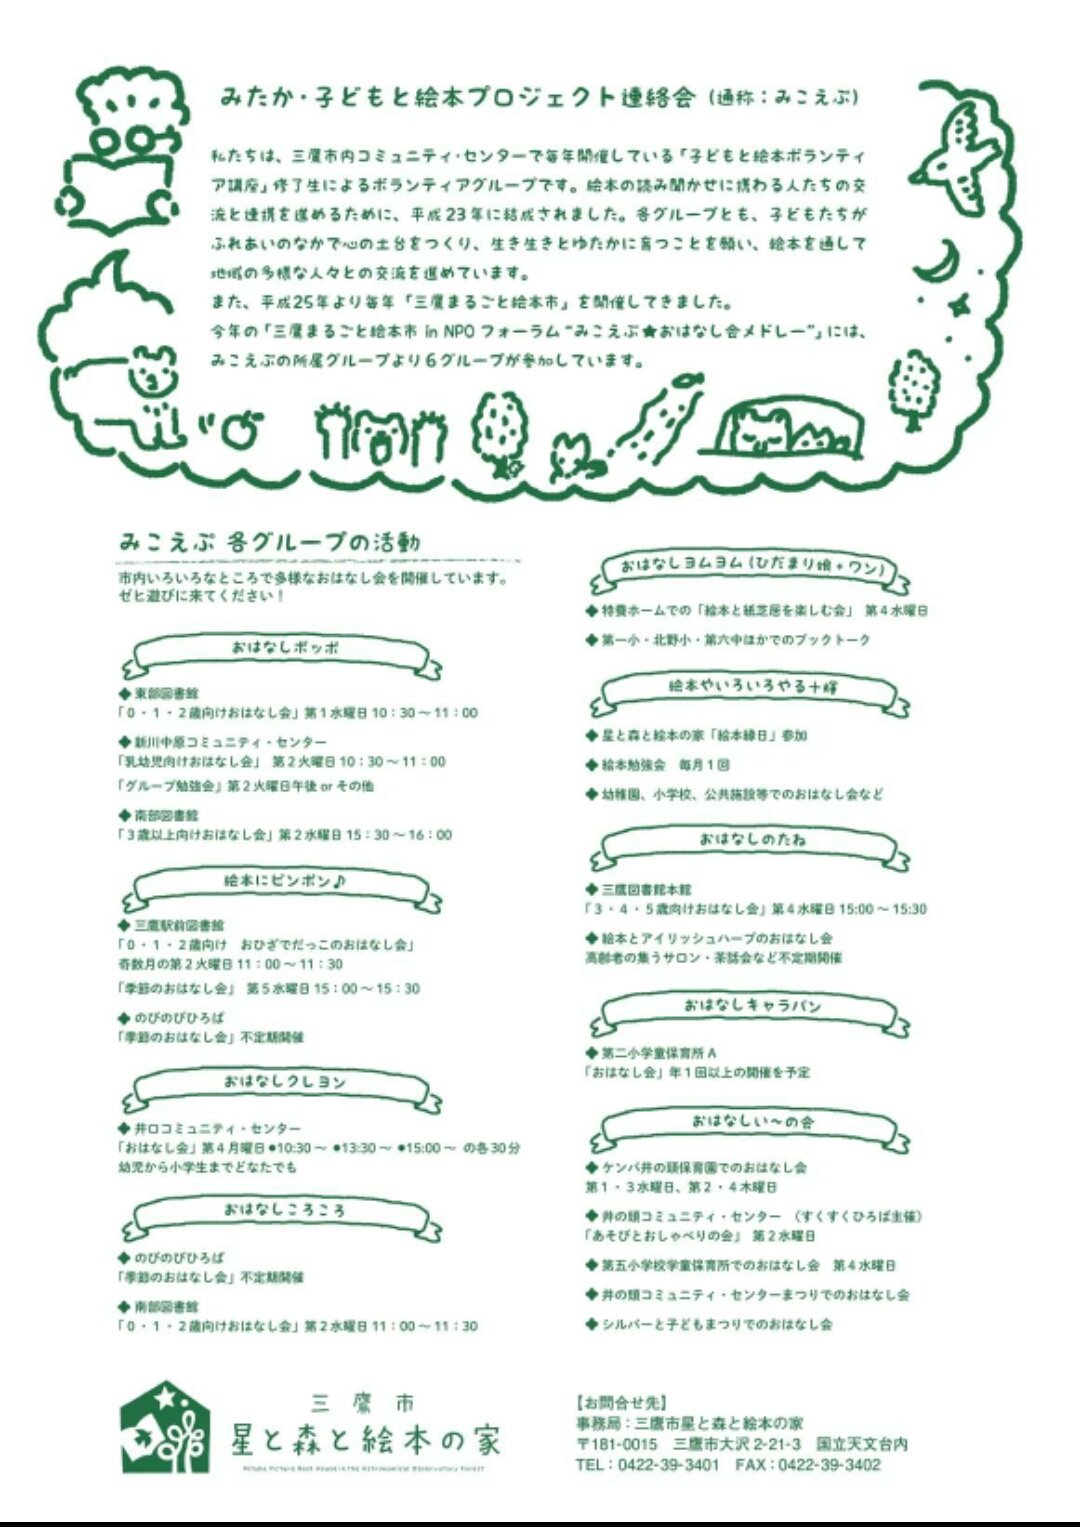 みたか・子どもと絵本プロジェクト連絡会（通称：みこえぷ）
私たちは、三鷹市内コミュニティ・センターで毎年開催している「子どもと絵本ボランティ
ア講座」修了生によるボランティアグループです。絵本の読み聞かせに携わる人たちの交
流と連携を進めるために、平成23年に結成されました。各グループとも、子どもたちが
ふれあいのなかで心の土台をつくり、生き生きとゆたかに育つことを願い、絵本を通して
地域の多様な人々との交流を進めています。
また、平成25年より毎年「三鷹まるごと絵本市」を開催してきました。
今年の「三鷹まるごと絵本市 in NPO フォーラム“みこえぷ★おはなし会メドレー”」には、
みこえぷの所属グループより６グループが参加しています。
みこえぷ 各グループの活動
市内いろいろなところで多様なおはなし会を開催しています。
ぜヒ遊びに来てください！
おはなしポッポ
◆ 東部図書館
「０・１・２歳向けおはなし会」第１水曜日 10：30 ～ 11：00
◆ 新川中原コミュニティ・センター
「乳幼児向けおはなし会」　第２火曜日 10：30 ～ 11：00
「グループ勉強会」第２火曜日午後 or その他
◆ 南部図書館
「３歳以上向けおはなし会」第２水曜日 15：30 ～ 16：00
絵本にピンポン♪
◆ 三鷹駅前図書館
「０・１・２歳向け　おひざでだっこのおはなし会」
奇数月の第２火曜日 11：00 ～ 11：30
「季節のおはなし会」　第５水曜日 15：00 ～ 15：30
◆ のびのびひろば
「季節のおはなし会」不定期開催
おはなしクレヨン
◆ 井口コミュニティ・センター
「おはなし会」第４月曜日 ●10:30 ～ ●13:30 ～ ●15:00 ～ の各30分
幼児から小学生までどなたでも
おはなしころころ
◆ のびのびひろば
「季節のおはなし会」不定期開催
◆ 南部図書館
「０・１・２歳向けおはなし会」第２水曜日 11：00 ～ 11：30
おはなしヨムヨム（ひだまり娘＋ワン）
◆ 特養ホームでの「絵本と紙芝居を楽しむ会」　第４水曜日
◆ 第一小・北野小・第六中ほかでのブックトーク
絵本やいろいろやる十輝
◆ 星と森と絵本の家「絵本縁日」参加
◆ 絵本勉強会　毎月１回
◆ 幼稚園、小学校、公共施設等でのおはなし会など
おはなしのたね
◆ 三鷹図書館本館
「３・４・５歳向けおはなし会」第４水曜日 15:00 ～ 15:30
◆ 絵本とアイリッシュハープのおはなし会
高齢者の集うサロン・茶話会など不定期開催
おはなしキャラバン
◆ 第二小学童保育所 A
「おはなし会」年１回以上の開催を予定
おはなしい～の会
◆ ケンパ井の頭保育園でのおはなし会
第１・３水曜日、第２・４木曜日
◆ 井の頭コミュニティ・センター　（すくすくひろば主催）
「あそびとおしゃべりの会」　第２水曜日
◆ 第五小学校学童保育所でのおはなし会　第４水曜日
◆ 井の頭コミュニティ・センターまつりでのおはなし会
◆ シルバーと子どもまつりでのおはなし会
三鷹市
星と森と絵本の家
Mitaka Picture Book House in the Astronomical Observatory Forest
【お問合せ先】
事務局：三鷹市星と森と絵本の家
〒181-0015　三鷹市大沢 2-21-3　国立天文台内
TEL：0422-39-3401　FAX：0422-39-3402